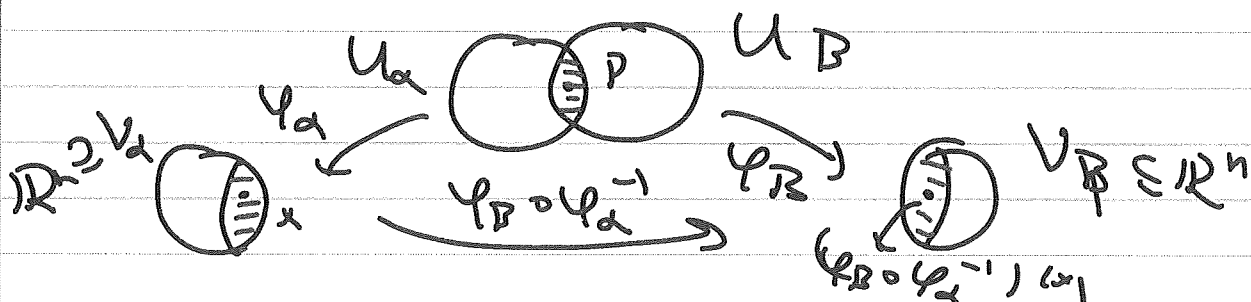 U_α P U_B
φ_α φ_B
ℝⁿ ⊇ V_α x φ_B ∘ φ_α⁻¹ V_B ⊆ ℝⁿ
(φ_B ∘ φ_α⁻¹)(x)